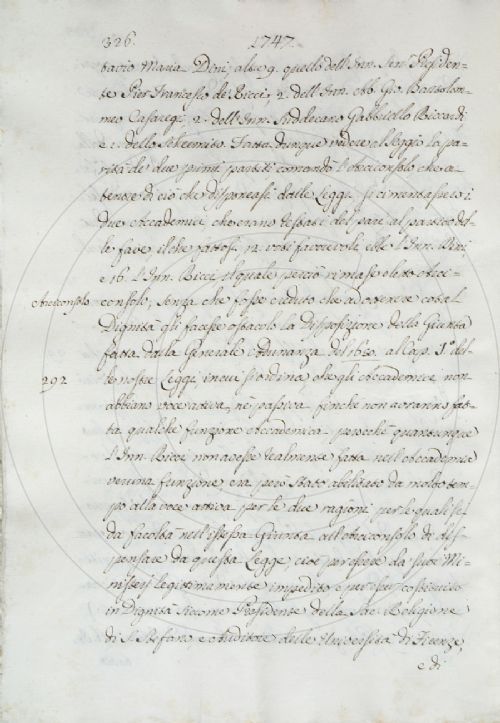 326. 1747.
tavio Maria Dini, altre 9. quello dell'Inn. Sen.e Presiden-
te Pier Francesco de Ricci, 2. dell'Inn. Ab. Gio. Bartolom-
meo Casaregi, 2. dell'Inn. Suddecano Gabbriello Riccardi,
e 1. dello Schermito. Fatta dunque vedere al Seggio la pa-
rità de due primi partiti comandò l'Arciconsolo che a
tenore di ciò che disponeasi dalle Leggi si cimentassero i
due Accademici, che erano restati del pari al partito del-
le fave, il che fattosi, 12. voti favorevoli ebbe l'Inn. Dini,
e 16. l'Inn. Ricci, il quale perciò rimase eletto Arci-
Arciconsolo
consolo, senza che fosse creduto che ad ottenere cotal
Dignità gli facesse ostacolo la Disposizione della Giunta
fatta dalla Generale Adunanza del 1650. al Cap. 1.o del-
292
le nostre Leggi, in cui si ordina che gli Accademici non
abbiano voce attiva, nè passiva, finchè non avranno fat-
ta qualche funzione Accademica, perocchè quantunque
l'Inn. Ricci non avesse realmente fatta nell'Accademia
veruna funzione era però stato abilitato da molto tem-
po alla voce attiva per le due ragioni per le quali si
da facoltà nell'istessa Giunta all'Arciconsolo di dis-
pensare da questa Legge, cioè per essere da suoi Mi-
nisterj legittimamente impedito e per esser costituito
in Dignità siccome Presidente della Sac. Religione
di S. Stefano, e Auditore delle Università di Firenze,
e di